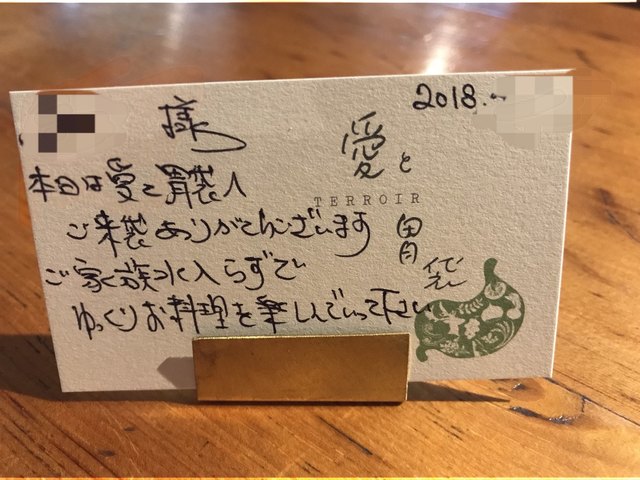 様
2018.
本日は愛と胃袋へ
ご来袋ありがとうございます
ご家族水入らずで
ゆっくりお料理を楽しんでいって下さい
愛と
TERROIR
胃袋